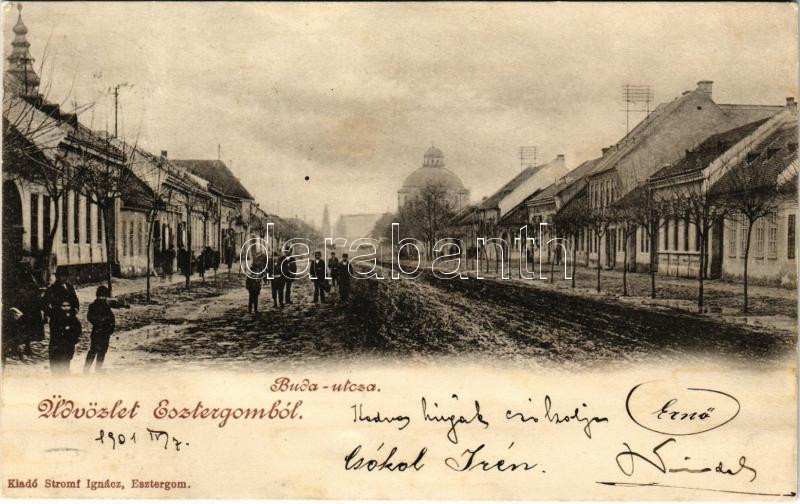 darabanth
Buda-utcza.
Üdvözlet Esztergomból.
1901 IV/7.
Kedves húgát csókolja
Ernő
Csókol Irén.
Kiadó Stromf Ignácz, Esztergom.